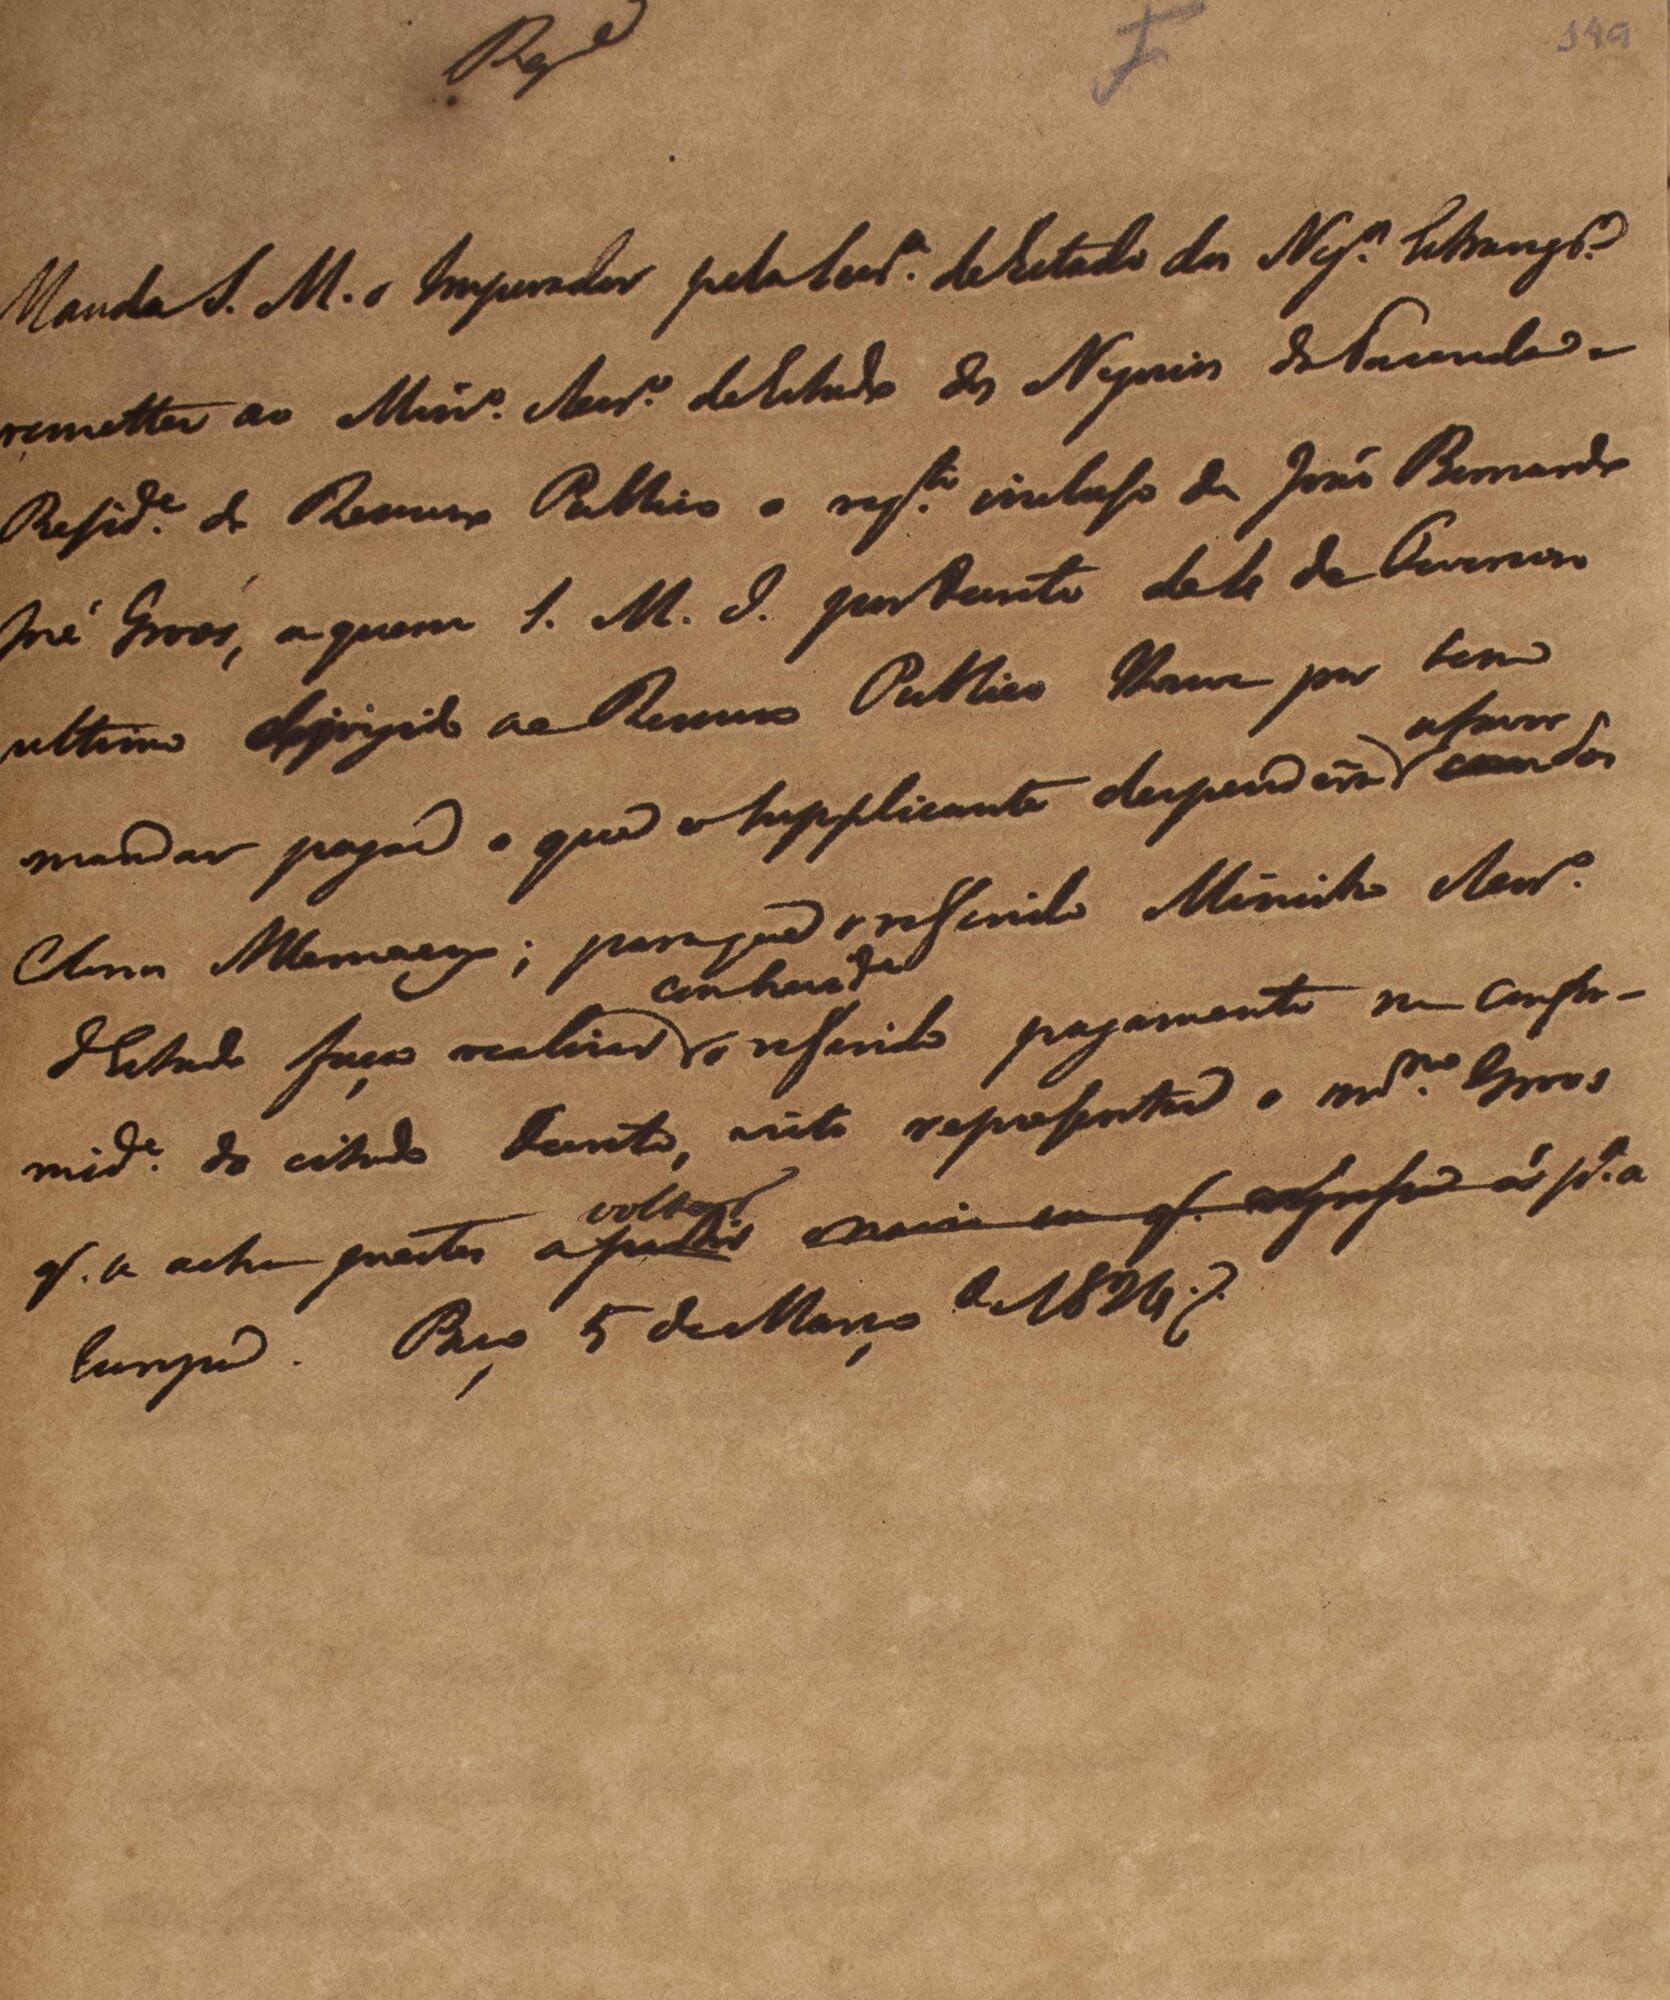 Reg.e
F 149
Manda S. M. o Imperador pela Secr.a de Estado dos Neg.os Estrang.ros
remetter ao Min.o Secr.o de Estado dos Negocios da Fazenda e
Presid.e do Thesouro Publico o req.to incluso de João Bernardo
José Groos, a quem S. M. I. por Decreto de 16 de Fevereiro
ultimo dirigido ao Thesouro Publico Houve por bem
mandar pagar o que o Supplicante despendêra a favor dos
Colonos Allemaens; para que o referido Ministro Secr.o
d'Estado faça realizar com brevid.e o referido pagamento na confor-
mid.e do citado Decreto, visto representar o m.mo Groos
q. se acha prestes a voltar p.a a
Europa. Paço 5 de Março de 1824.